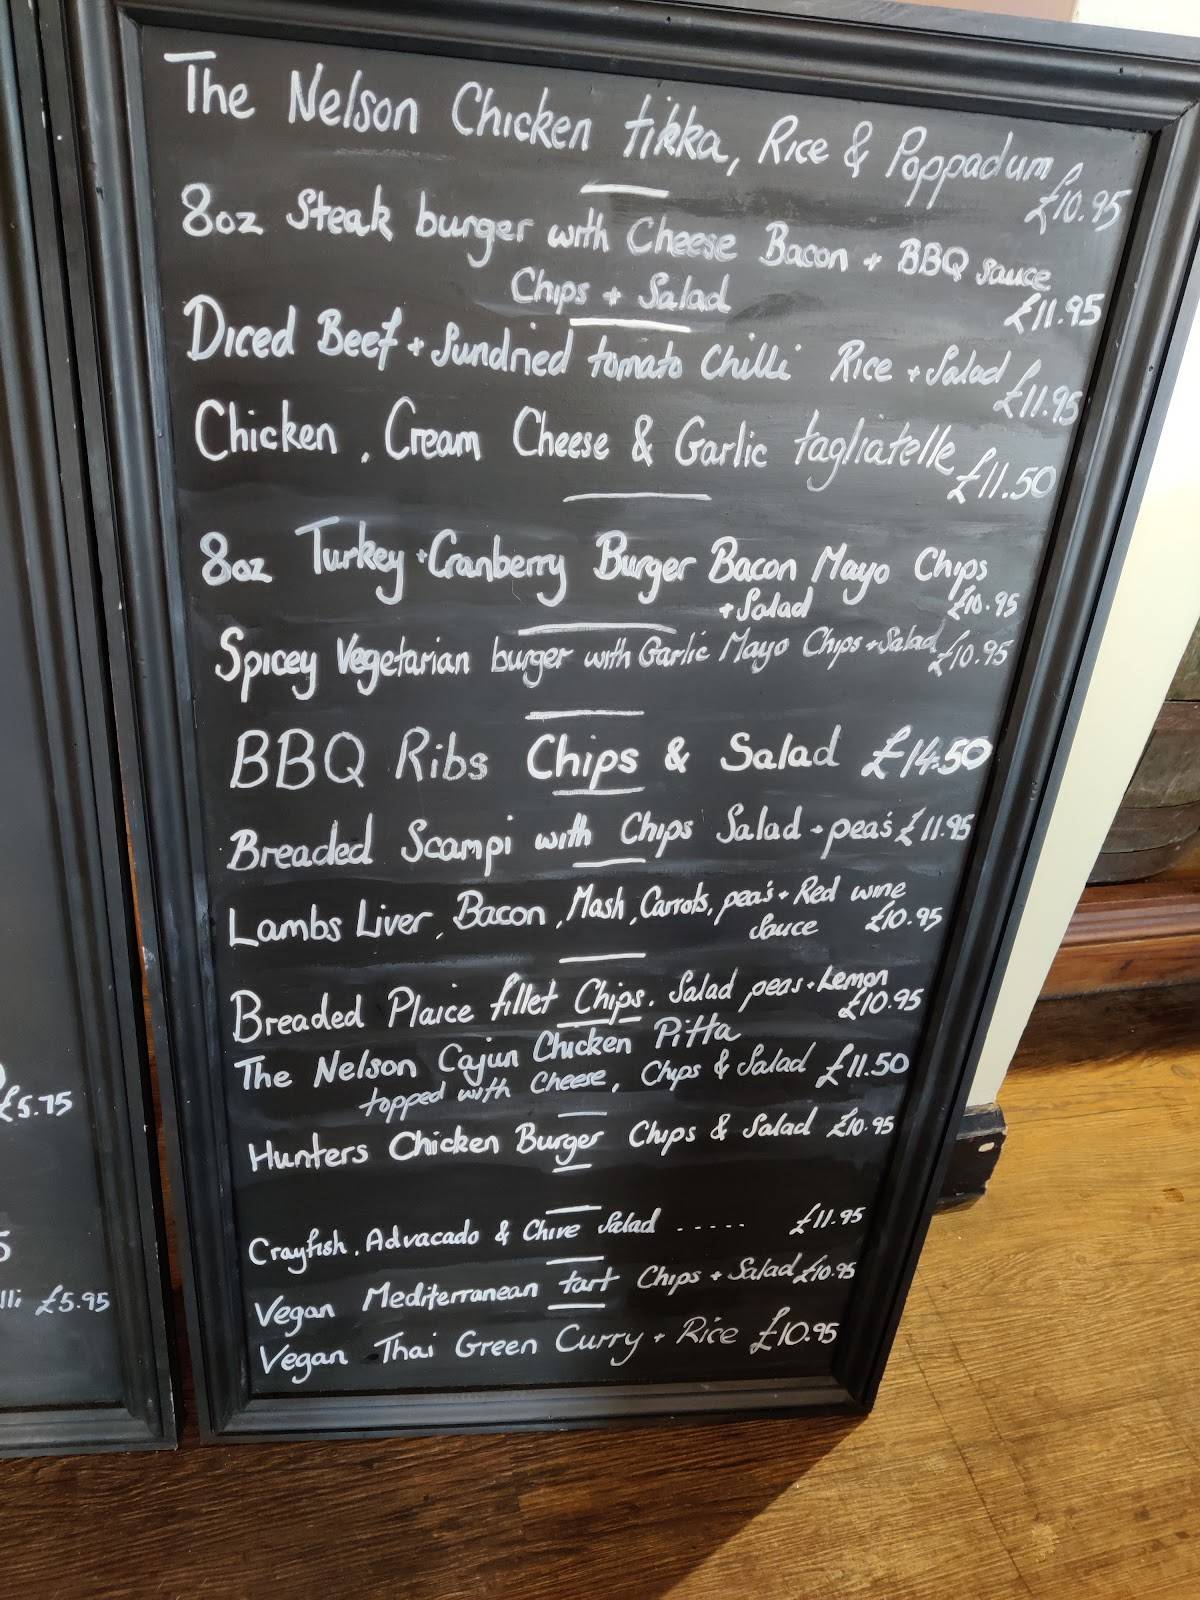 The Nelson Chicken tikka, Rice & Poppadum £10.95
8oz Steak burger with Cheese Bacon + BBQ sauce
Chips + Salad £11.95
Diced Beef + Sundried tomato Chilli Rice + Salad £11.95
Chicken, Cream Cheese & Garlic tagliatelle £11.50
8oz Turkey + Cranberry Burger Bacon Mayo Chips
+ Salad £10.95
Spicey Vegetarian burger with Garlic Mayo Chips + Salad £10.95
BBQ Ribs Chips & Salad £14.50
Breaded Scampi with Chips Salad + pea's £11.95
Lambs Liver, Bacon, Mash, Carrots, pea's + Red wine
Sauce £10.95
Breaded Plaice fillet Chips. Salad peas + Lemon
£10.95
The Nelson Cajun Chicken Pitta
topped with Cheese, Chips & Salad £11.50
Hunters Chicken Burger Chips & Salad £10.95
Crayfish, Advacado & Chive Salad ..... £11.95
Vegan Mediterranean tart Chips + Salad £10.95
Vegan Thai Green Curry + Rice £10.95
£5.75
lli £5.95